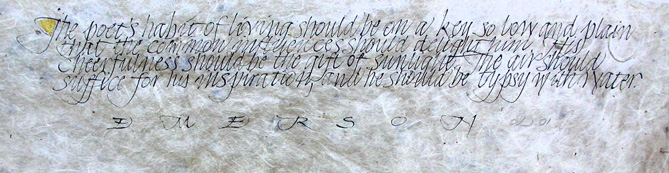 The poet's habit of living should be on a key so low and plain
that the common influences should delight him. His
cheerfulness should be the gift of sunlight. The air should
suffice for his inspiration, and he should be typsy with water.
EMERSON